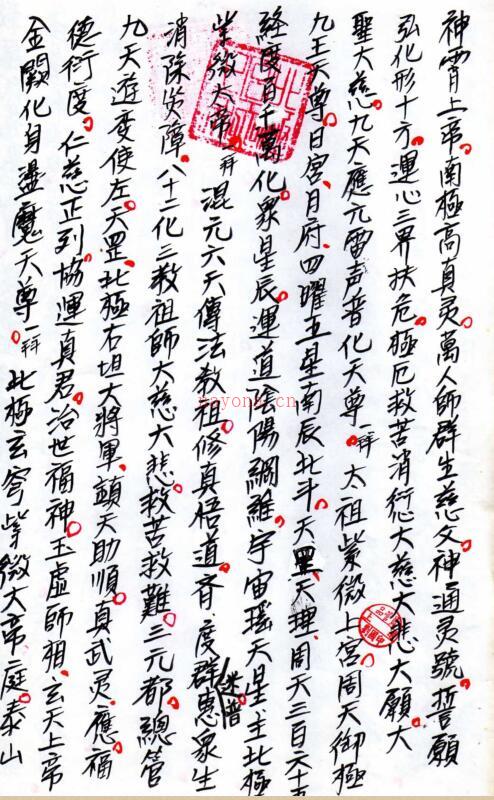 神霄上帝南極高真灵萬人師群生慈父神通灵號誓願
弘化形十方運心三界扶危極厄救苦消衍大慈大悲大願大
聖大慈九天應元雷声普化天尊一拜太祖紫微上宫周天御極
九王天尊日宫月府四曜五星南辰北斗天罡天理周天三百六十五
經度百千萬化衆星辰運道陰陽綱維宇宙瑶天星主北極
紫微大帝一拜混元六天傳法教祖修真悟道齐度群迷普惠衆生
消除災障八十二化三教祖師大慈大悲救苦救難三元都總管
九天遊变使左天罡北極右垣大將軍鎮天助順真武灵應福
德衍度仁慈正列協運真君治世福神玉虚師相玄天上帝
金闕化身盪魔天尊一拜北極玄穹紫微大帝庭泰山
nayona.cn